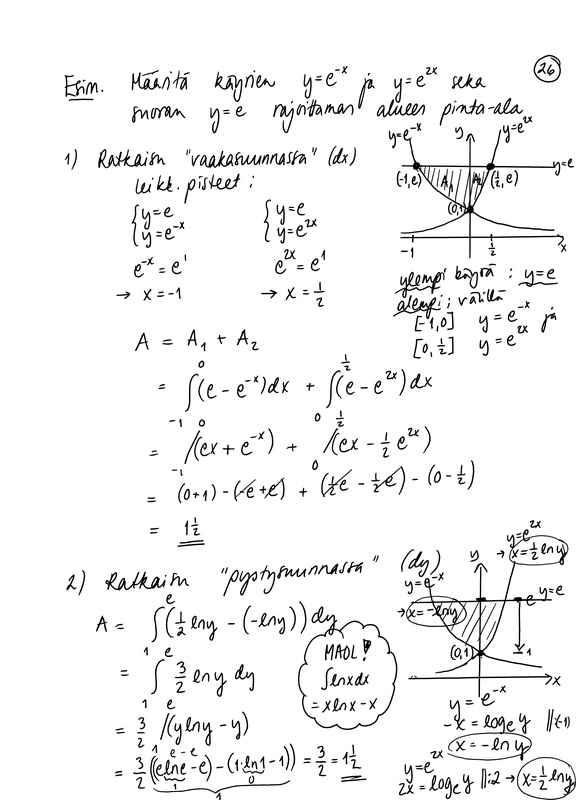 26
Esim. Määritä käyrien y=e^-x ja y=e^2x sekä
suoran y=e rajoittaman alueen pinta-ala
1) Ratkaisu "vaakasuunnassa" (dx)
leikk. pisteet:
{y=e
{y=e^-x
e^-x = e^1
→ x=-1
{y=e
{y=e^2x
e^2x = e^1
→ x = 1/2
y=e^-x y y=e^2x
y=e
(-1,e) A₁ A₂ (1/2, e)
(0,1)
-1 1/2 x
ylempi käyrä: y=e
alempi; välillä
[-1,0] y=e^-x ja
[0, 1/2] y=e^2x
A = A₁ + A₂
= ∫_-1^0 (e - e^-x)dx + ∫_0^1/2 (e - e^2x)dx
= /_-1^0 (ex + e^-x) + /_0^1/2 (ex - 1/2 e^2x)
= (0+1) - (-e+e) + (1/2 e - 1/2 e) - (0 - 1/2)
= 1 1/2
2) Ratkaisu "pystysuunnassa" (dy)
A = ∫_1^e (1/2 lny - (-lny)) dy
= ∫_1^e 3/2 lny dy
= 3/2 /_1^e (ylny - y)
= 3/2 ((elne - e) - (1·ln1 - 1)) = 3/2 = 1 1/2
e - e
1 0
1
MAOL!
∫lnxdx
= xlnx - x
y=e^2x
y → x=1/2 lny
y=e^-x
→ x=-lny
e y=e
(0,1) 1
x
y = e^-x
-x = log_e y ||·(-1)
x = -ln y
y=e^2x
2x = log_e y ||:2 → x = 1/2 lny